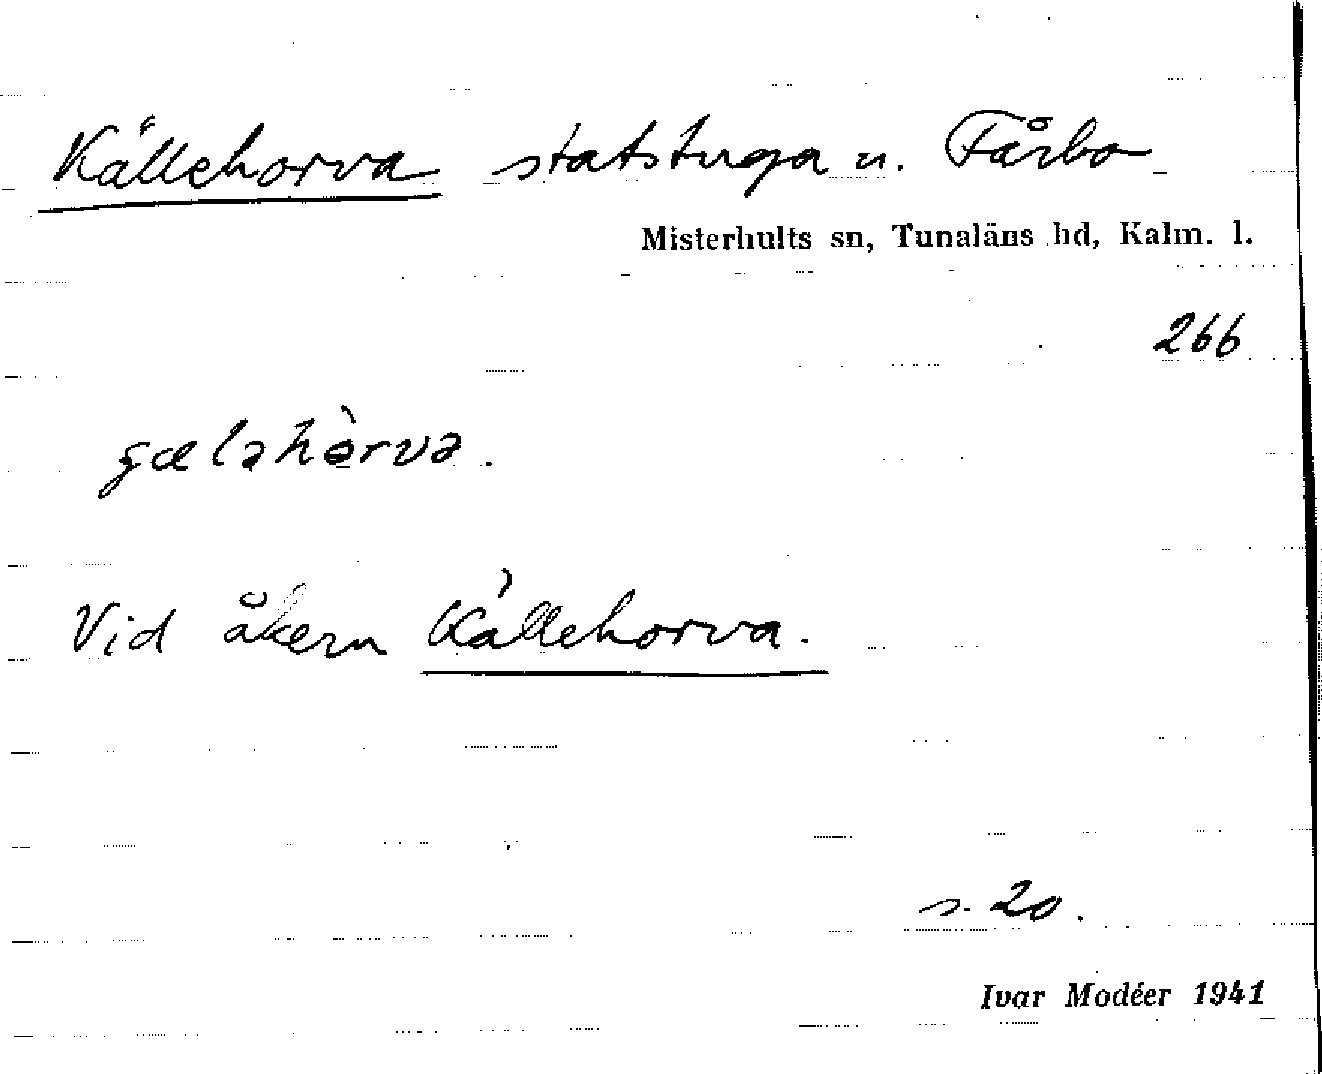 Källehorva statstuga u. Fårbo
Misterhults sn, Tunaläns hd, Kalm. l.
266
ꞔæləhòrva.
Vid åkern Källehorva.
s. 20.
Ivar Modéer 1941